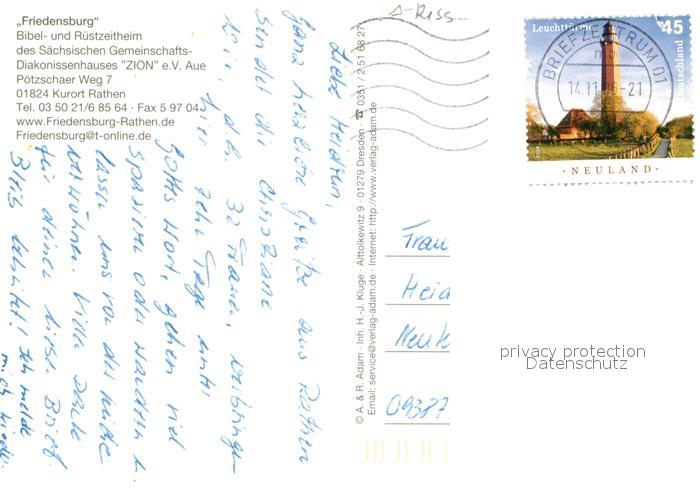 „Friedensburg"
Bibel- und Rüstzeitheim
des Sächsischen Gemeinschafts-
Diakonissenhauses "ZION" e.V. Aue
Pötzschaer Weg 7
01824 Kurort Rathen
Tel. 03 50 21/6 85 64 · Fax 5 97 04
www.Friedensburg-Rathen.de
Friedensburg@t-online.de
Liebe
Ganz herzliche Grüße aus Rathen
sendet dir Christiane
Wir, d.h. 32 Frauen, verbringen
hier zehn Tage unter
Gottes Wort, gehen viel
spazieren oder wandern u.
lassen uns von der Küche
verwöhnen. Vielen Dank
für deinen lieben Brief.
Bleib behütet! Ich melde
mich wieder.
© A. & R. Adam · Inh. H.-J. Kluge · Alttolkewitz 9 · 01279 Dresden · ☎ 0351 / 2 51 68 27
Email: service@verlag-adam.de · Internet: http://www.verlag-adam.de
A-RISS
Leuchttürme
45
Deutschland
BRIEFZENTRUM 01
· NEULAND ·
Frau
Heid
Neuk
09387
privacy protection
Datenschutz